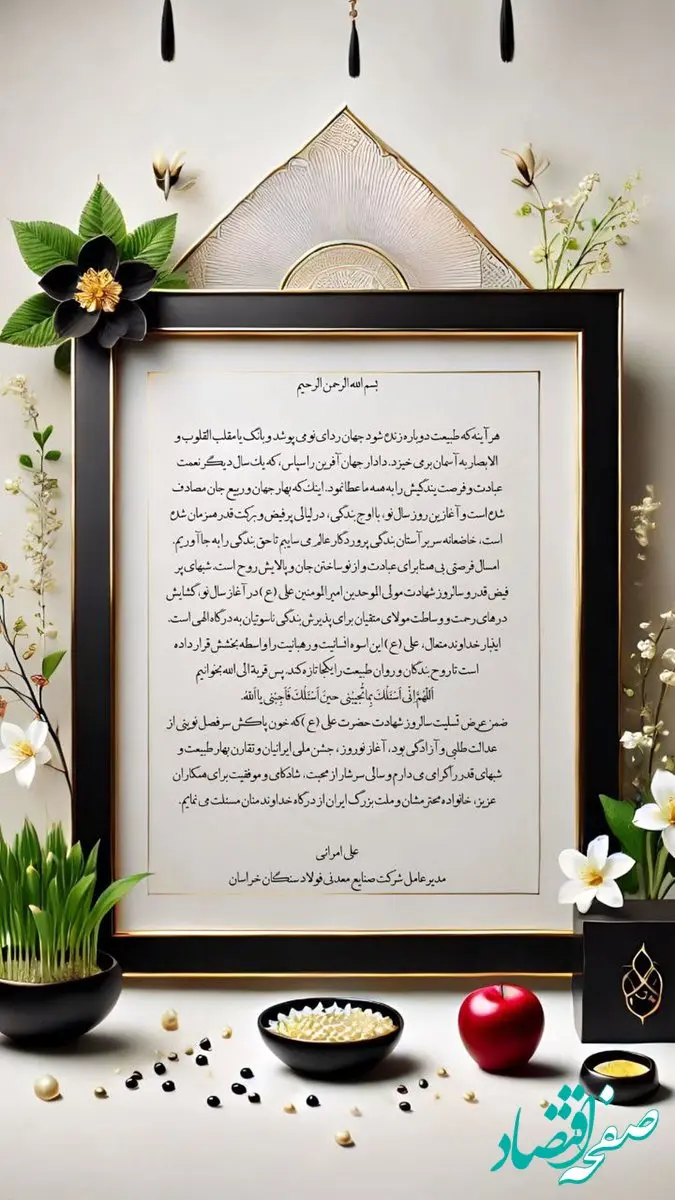 بسم الله الرحمن الرحیم
هر آینه که طبیعت دوباره زنده شود جهان ردای نو می پوشد و بانگ یا مقلب القلوب و
الابصار به آسمان برمی خیزد. دادار جهان آفرین را سپاس، که یک سال دیگر نعمت
عبادت و فرصت بندگیش را به همه ما عطا نمود. اینک که بهار جهان و ربیع جان مصادف
شده است و آغازین روز سال نو، با اوج بندگی، در لیالی پر فیض و برکت قدر همزمان شده
است، خاضعانه سر بر آستان بندگی پروردگار عالم می ساییم تا حق بندگی را به جا آوریم.
امسال فرصتی بی همتا برای عبادت و از نو ساختن جان و پالایش روح است. شبهای پر
فیض قدر و سالروز شهادت مولی الموحدین امیرالمومنین علی (ع) در آغاز سال نو، گشایش
درهای رحمت و وساطت مولای متقیان برای پذیرش بندگی ناسوتیان به درگاه الهی است.
اینبار خداوند متعال، علی (ع) این اسوه انسانیت و رهبانیت را واسطه بخشش قرار داده
است تا روح بندگان و روان طبیعت را یکجا تازه کند. پس قربة الی الله بخوانیم
اَللّهُمَّ اِنّی اَسْئَلُکَ بِما تُجیبُنی حینَ اَسْئَلُکَ فَاَجِبْنی یا اَللهُ.
ضمن عرض تسلیت سالروز شهادت حضرت علی (ع) که خون پاکش سرفصل نوینی از
عدالت طلبی و آزادگی بود، آغاز نوروز، جشن ملی ایرانیان و تقارن بهار طبیعت و
شبهای قدر را گرامی می دارم و سالی سرشار از محبت، شادکامی و موفقیت برای همکاران
عزیز، خانواده محترمشان و ملت بزرگ ایران از درگاه خداوند منان مسئلت می نمایم.
علی امرانی
مدیر عامل شرکت صنایع معدنی فولاد سنگان خراسان
صفحه اقتصاد